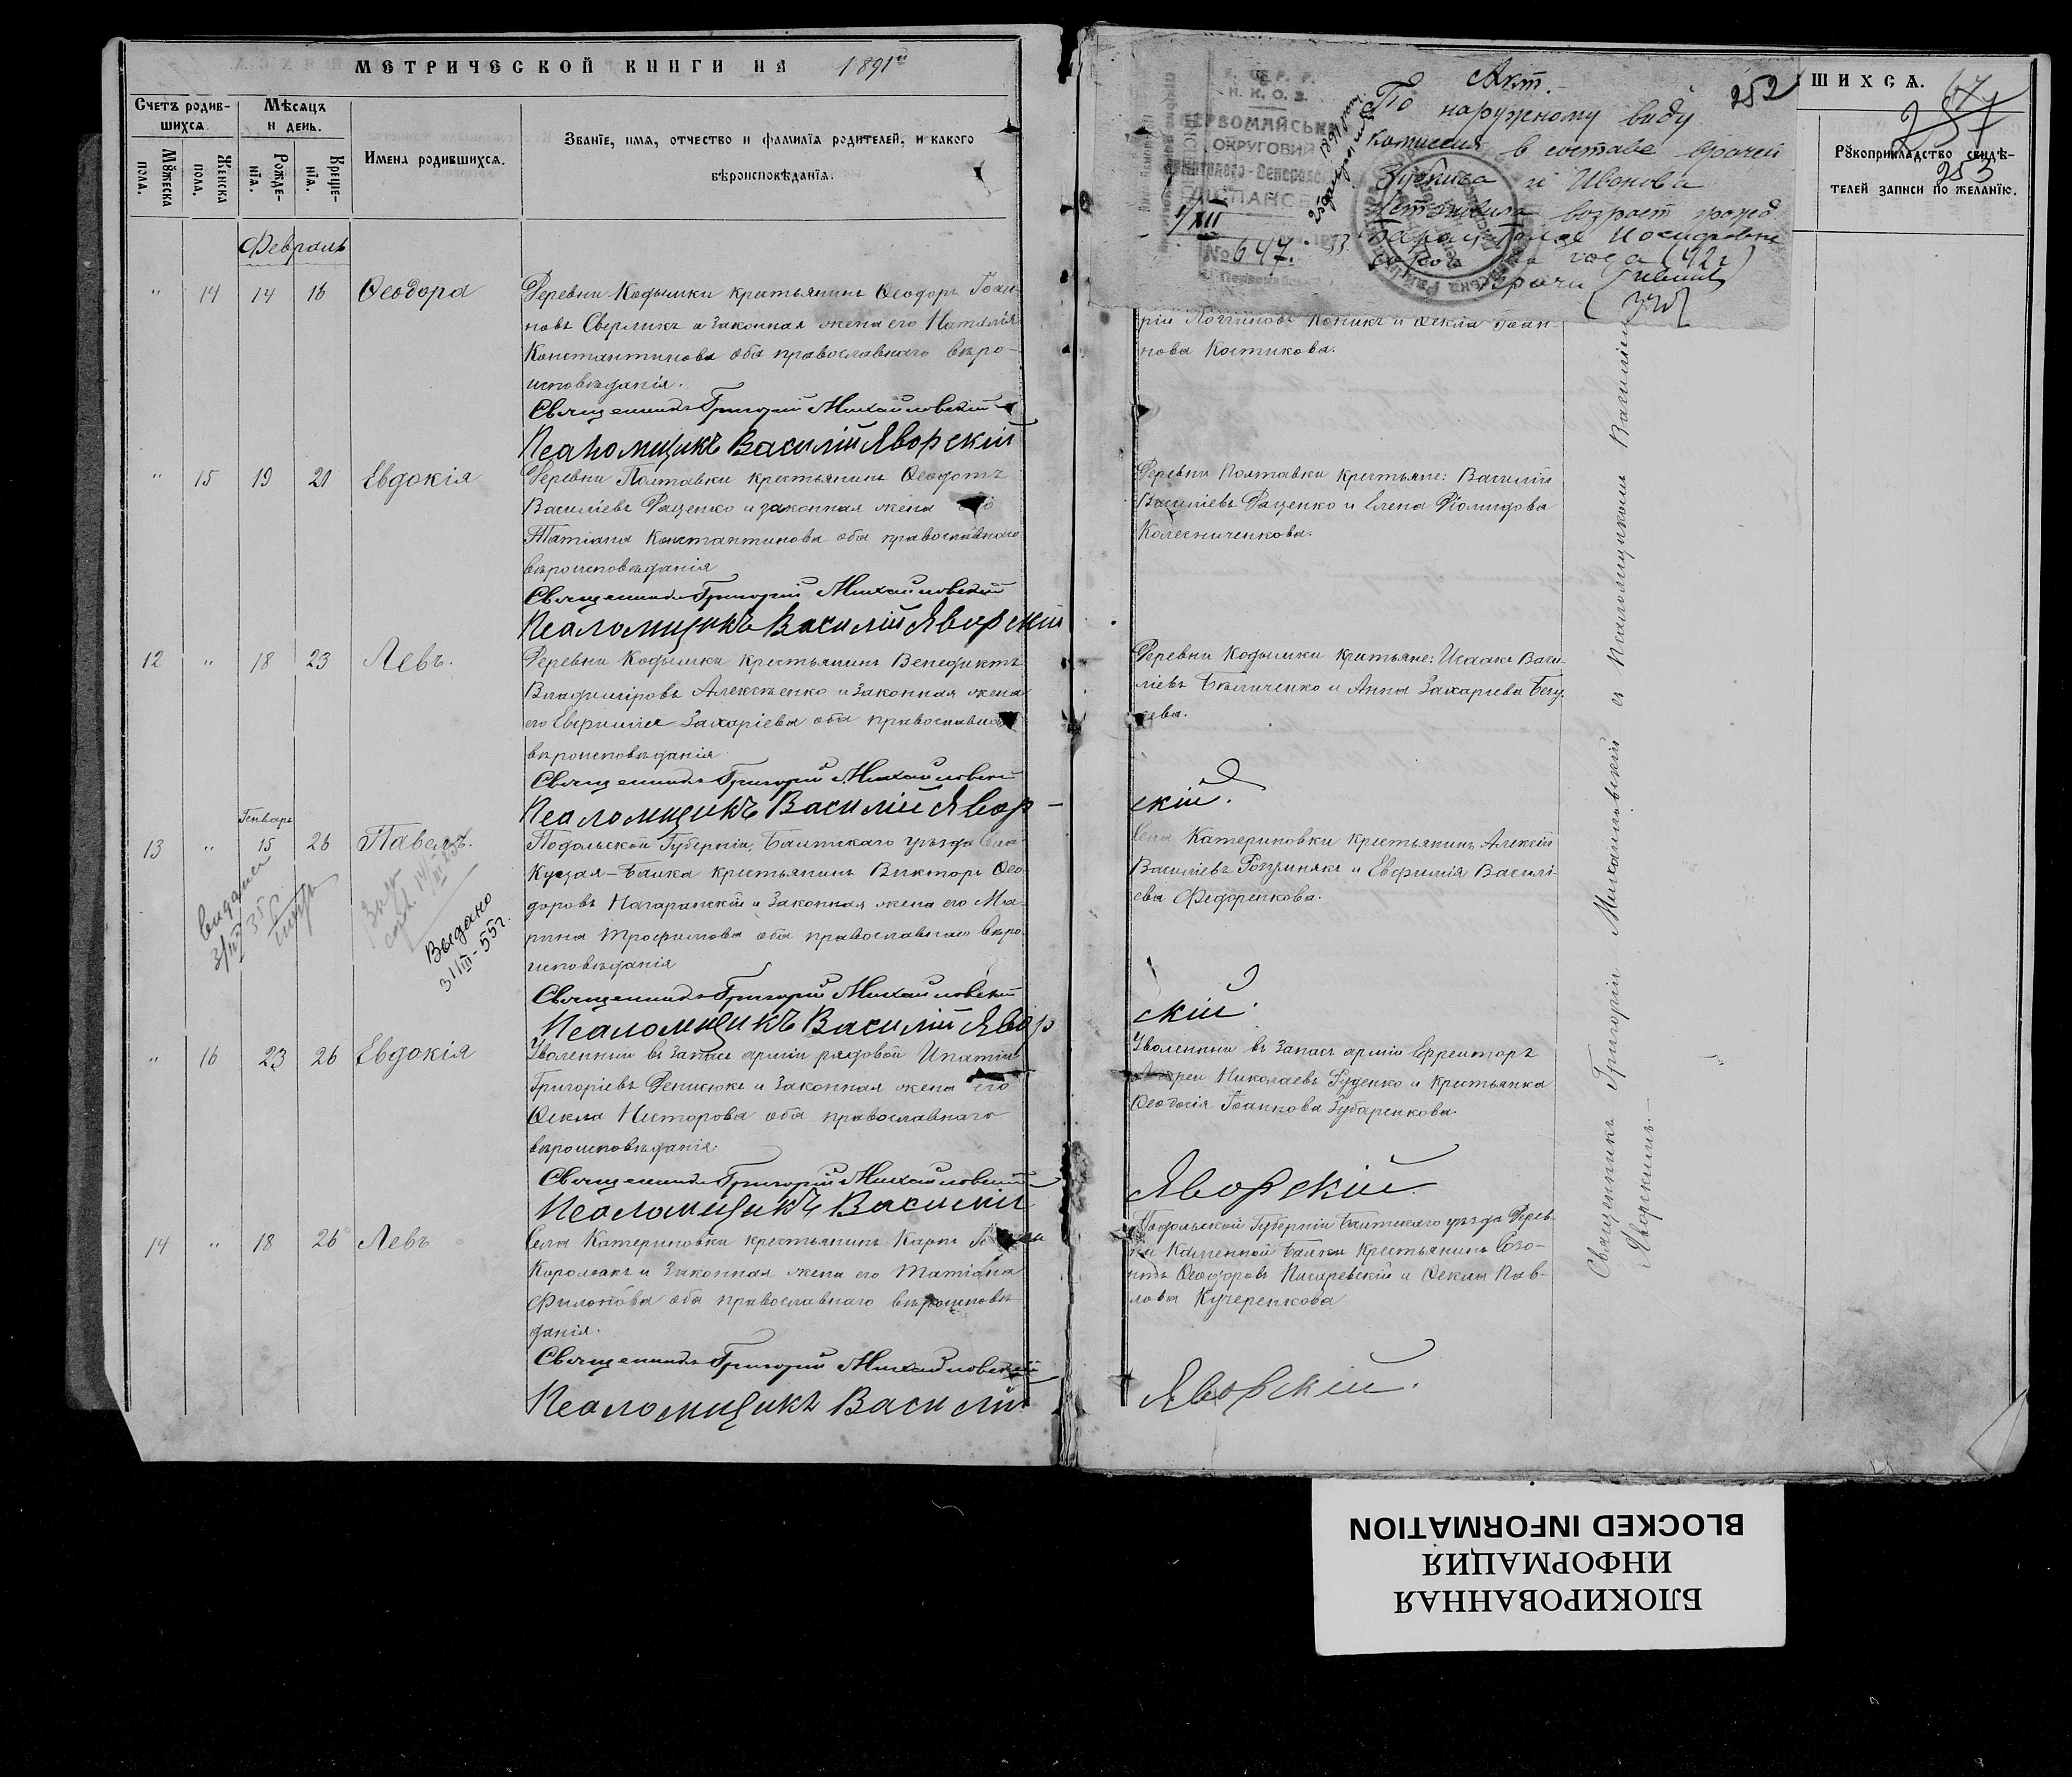 МЕТРИЧЕСКОЙ КНИГИ НА 1891й
Счетъ родив-
шихся.
Мѣсяцъ
и день.
Мꙋжеска
пола.
Женска
пола.
Рожде-
нїя.
Креще-
нїя.
Имена родившихся.
Званїе, имя, отчество и фамилїа родителей, и какого
вѣроисповѣданїя.
Февраль
" 14 14 16 Ѳеодора
Деревни Кодымки крестьянинъ Ѳеодоръ Іоан-
новъ Сверликъ и законная жена его Наталія
Константинова оба православнаго вѣро-
исповѣданія.
Священникъ Григорій Михайловскій
Псаломщикъ Василій Яворскій
" 15 19 21 Евдокія
Деревни Полтавки крестьянинъ Ѳеодотъ
Василіевъ Даценко и законная жена его
Татіана Константинова оба православнаго
вѣроисповѣданія
Священникъ Григорій Михайловскій
Псаломщикъ Василій Яворскій
12 " 18 23 Левъ.
Деревни Кодымки крестьянинъ Венедиктъ
Владиміровъ Алексѣенко и законная жена
его Евфимія Захаріева оба православнаго
вѣроисповѣданія
Священникъ Григорій Михайловскій
Псаломщикъ Василій Явор-
Генварь
13 " 15 26 Павелъ.
Подольской Губерніи, Балтскаго уѣзда Села
Куцая-Балка крестьянинъ Викторъ Ѳео-
доровъ Нагаранскій и законная жена его Ма-
рина Трофимова оба православнаго вѣро-
исповѣданія
Священникъ Григорій Михайловскій
Псаломщикъ Василій Явор
Выдано
31/III-55г.
" 16 23 26 Евдокія
Уволенный въ запасъ арміи рядовой Ипатій
Григоріевъ Денисюкъ и законная жена его
Ѳекла Несторова оба православнаго
вѣроисповѣданія
Священникъ Григорій Михайловскій
Псаломщикъ Василій
14 " 18 26 Левъ
Села Катериновки крестьянинъ Карпъ
Королюкъ и законная жена его Татіана
Филонова оба православнаго вѣроисповѣ-
данія.
Священникъ Григорій Михайловскій
Псаломщикъ Василій
ШИХСЯ.
67
257
253
Рꙋкоприкладство свидѣ-
телей записи по желанїю.
252
Акт.
По наружному виду
комиссия в составе врачей
и Иванова
Установила возраст гражд.
Иосифовне
сорок два года (42 г)
Врачи
У. С. Р. Р.
Н. К. О. З.
ПЕРВОМАЙСЬКИЙ
ОКРУГОВИЙ
ДИСПАНСЕР
1/XII
№ 647.
нова Костикова.
Деревни Полтавки крестьяне: Василій
Василіевъ Даценко и Елена Діомидова
Колесниченкова.
Деревни Кодымки крестьяне: Исаакъ Васи-
ліевъ Бѣличенко и Анна Захаріева
скій.
Села Катериновки крестьянинъ Алексій
Василіевъ и Евфимія Василі-
ева Федоренкова.
скій.
Уволенный въ запасъ арміи Ефрейторъ
Андрей Николаевъ Руденко и крестьянка
Ѳеодосія Іоаннова Зубаренкова.
Яворскій
Подольской Губерніи Балтскаго уѣзда Дерев-
ни Каменной Балки крестьянинъ Созо-
нтъ Ѳеодоровъ Писаревскій и Ѳекла Пав-
лова Кучеренкова
Яворскій.
Священникъ Григорій Михайловскій съ Псаломщикомъ Василіемъ
Яворскимъ.
БЛОКИРОВАННАЯ
ИНФОРМАЦИЯ
BLOCKED INFORMATION